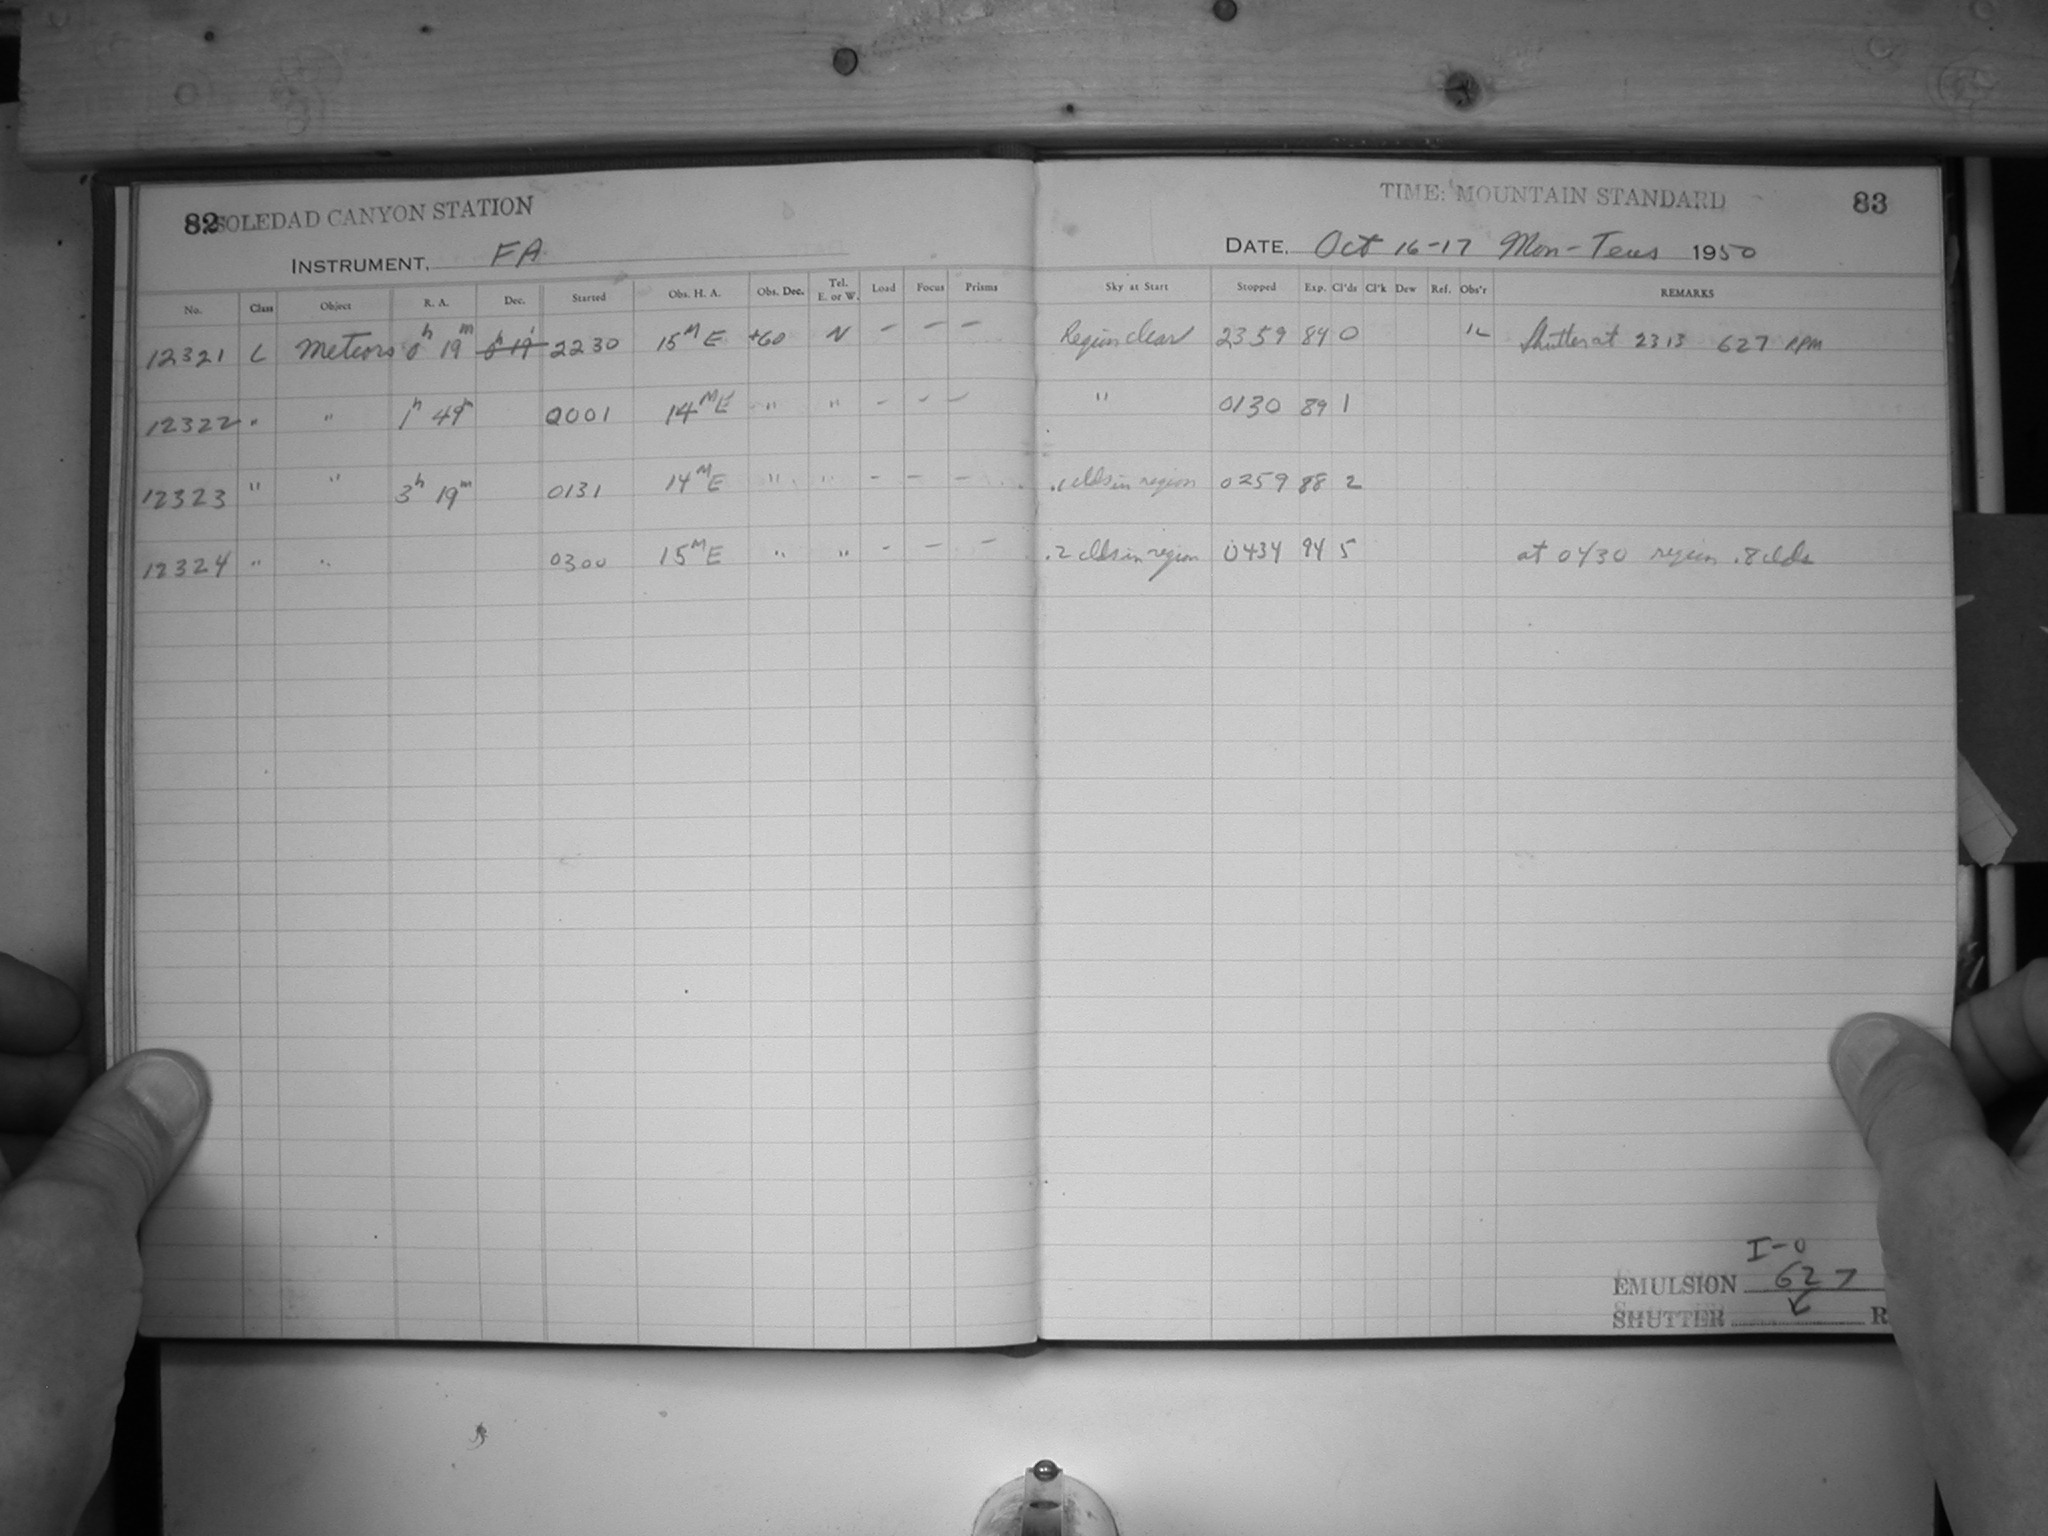 82 SOLEDAD CANYON STATION
INSTRUMENT. FA
No. Class Object R. A. Dec. Started Obs. H. A. Obs. Dec. Tel. E. or W. Load Focus Prisms
12321 C Meteors 0h 19m 0h 19 2230 15M E +60 N - - -
12322 " " 1h 49m 0001 14M E " " - - -
12323 " " 3h 19m 0131 14M E " " - - -
12324 " " 0300 15M E " " - - -
TIME: MOUNTAIN STANDARD 83
DATE. Oct 16-17 Mon-Teus 1950
Sky at Start Stopped Exp. Cl'ds Cl'k Dew Ref. Obs'r REMARKS
Region clear 2359 84 0 Shutter at 2313 627 RPM
" 0130 89 1
.1 clds in region 0259 88 2
.2 clds in region 0434 94 5 at 0430 region .8 clds
I-0
EMULSION 627
SHUTTER R